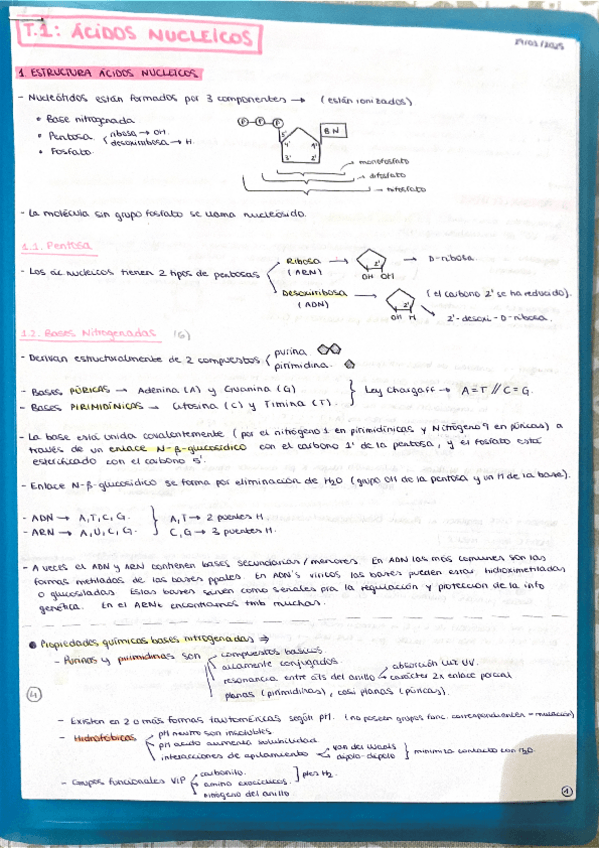 T.1: ÁCIDOS NUCLEICOS
29/01/2025
1 ESTRUCTURA ÁCIDOS NUCLEICOS
- Nucleótidos están formados por 3 componentes → (están ionizados)
• Base nitrogenada
• Pentosa ribosa → OH.
desoxirribosa → H.
• Fosfato.
P P P 5' BN
4' 1'
3' 2'
monofosfato
difosfato
trifosfato
- La molécula sin grupo fosfato se llama nucleósido.
1.1. Pentosa
- Los ác nucleicos tienen 2 tipos de pentosas
Ribosa → 2' → D-ribosa.
(ARN) OH OH
Desoxirribosa → 2' (el carbono 2' se ha reducido).
(ADN) OH H 2'-desoxi-D-ribosa.
1.2. Bases Nitrogenadas (G)
- Derivan estructuralmente de 2 compuestos. purina
pirimidina.
- Bases PÚRICAS → Adenina (A) y Guanina (G)
- Bases PIRIMIDÍNICAS → Citosina (C) y Timina (T).
Ley Chargaff → A=T // C=G.
- La base está unida covalentemente (por el nitrógeno 1 en pirimidínicas y Nitrógeno 9 en púricas) a
través de un enlace N-β-glucosídico con el carbono 1' de la pentosa, y el fosfato está
esterificado con el carbono 5'.
- Enlace N-β-glucosídico se forma por eliminación de H2O (grupo OH de la pentosa y un H de la base).
- ADN → A,T,C,G. A,T → 2 puentes H.
- ARN → A,U,C,G. C,G → 3 puentes H.
- A veces el ADN y ARN contienen bases secundarias/menores. En ADN las más comunes son las
formas metiladas de las bases ppales. En ADN's víricos las bases pueden estar hidroximetiladas
o glucosiladas Estas bases sirven como señales pra la regulación y protección de la info
genética. En el ARNt encontramos tmb muchas.
• Propiedades químicas bases nitrogenadas ⇒
- Purinas y pirimidinas son compuestos básicos
altamente conjugados.
resonancia entre át's del anillo absorción luz UV.
carácter 2x enlace parcial
planas (pirimidinas), casi planas (púricas).
4
- Existen en 2 o más formas tautoméricas según pH. (no poseen grupos func. correspondientes = mutación)
- Hidrofóbicas pH neutro son insolubles.
pH ácido aumenta solubilidad
interacciones de apilamiento van der Waals
dipolo-dipolo
minimiza contacto con H2O.
- Grupos funcionales VIP carbonilo.
amino exocíclicos.
nitrógeno del anillo
ptes H2.
1